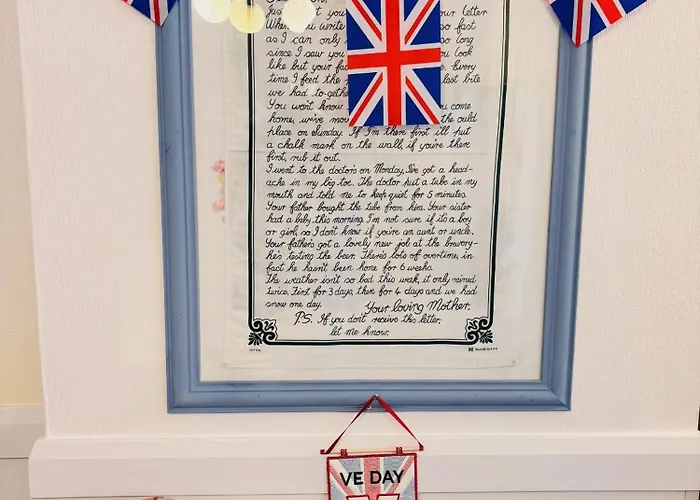 just
you
your letter
When you write
so fast
as I can only
so long
since I saw you
you look
like but your fac
Every
time I feed the
last bite
we had to-gethe
You won't know
you come
home, we've mov
the ould
place on Sunday. If I'm there first ill put
a chalk mark on the wall, if you're there
first, rub it out.
I went to the doctor's on Monday, I've got a head-
ache in my big toe. The doctor put a tube in my
mouth and told me to keep quiet for 5 minutes.
Your father bought the tube from him. Your sister
had a baby this morning. I'm not sure if it's a boy
or girl, so I don't know if you're an aunt or uncle.
Your father's got a lovely new job at the brewery-
he's testing the beer. There's lots of overtime, in
fact he hasn't been home for 6 weeks.
The weather isn't so bad this week, it only rained
twice. First for 3 days, then for 4 days and we had
snow one day.
Your loving Mother.
P.S. If you don't receive this letter,
let me know.
VE DAY